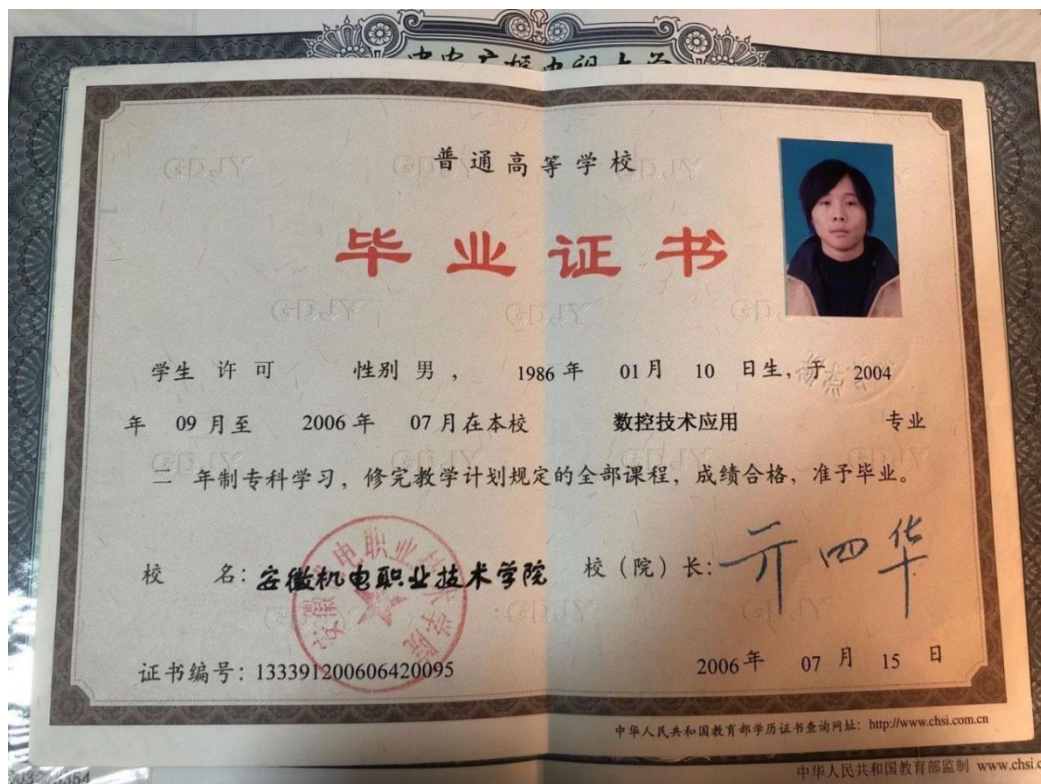 中央广播电视大学
普通高等学校
毕业证书
学生 许可 性别 男 ， 1986 年 01 月 10 日生，于 2004
年 09 月至 2006 年 07 月在本校 数控技术应用 专业
二 年制专科学习，修完教学计划规定的全部课程，成绩合格，准予毕业。
校 名：安徽机电职业技术学院 校（院）长：
安徽机电职业技术学院
证书编号：133391200606420095 2006 年 07 月 15 日
中华人民共和国教育部学历证书查询网址：http://www.chsi.com.cn
中华人民共和国教育部监制 www.chsi.c